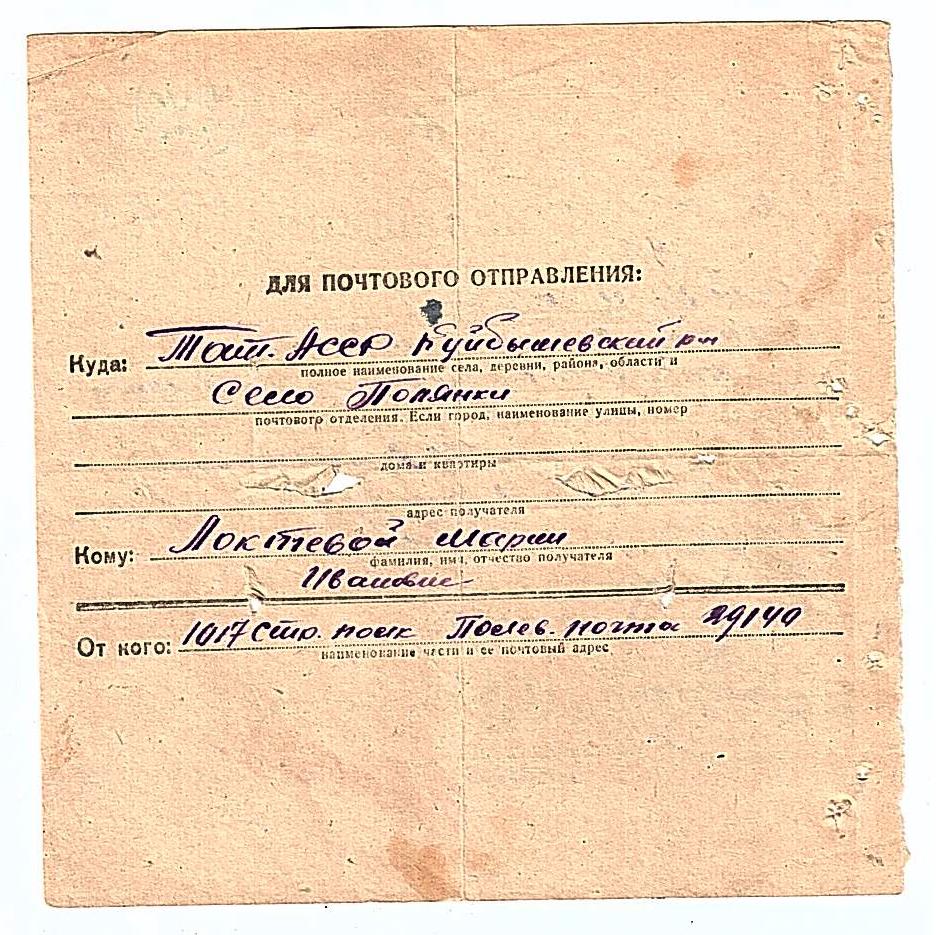 ДЛЯ ПОЧТОВОГО ОТПРАВЛЕНИЯ:
Куда: Тат. АССР Куйбышевский р-н
полное наименование села, деревни, района, области и
Село Полянки
почтового отделения. Если город, наименование улицы, номер
дома и квартиры
адрес получателя
Кому: Локтевой Марии
фамилия, имя, отчество получателя
Ивановне
От кого: 1017 Стр. полк Полев. почта 29140
наименование части и ее почтовый адрес